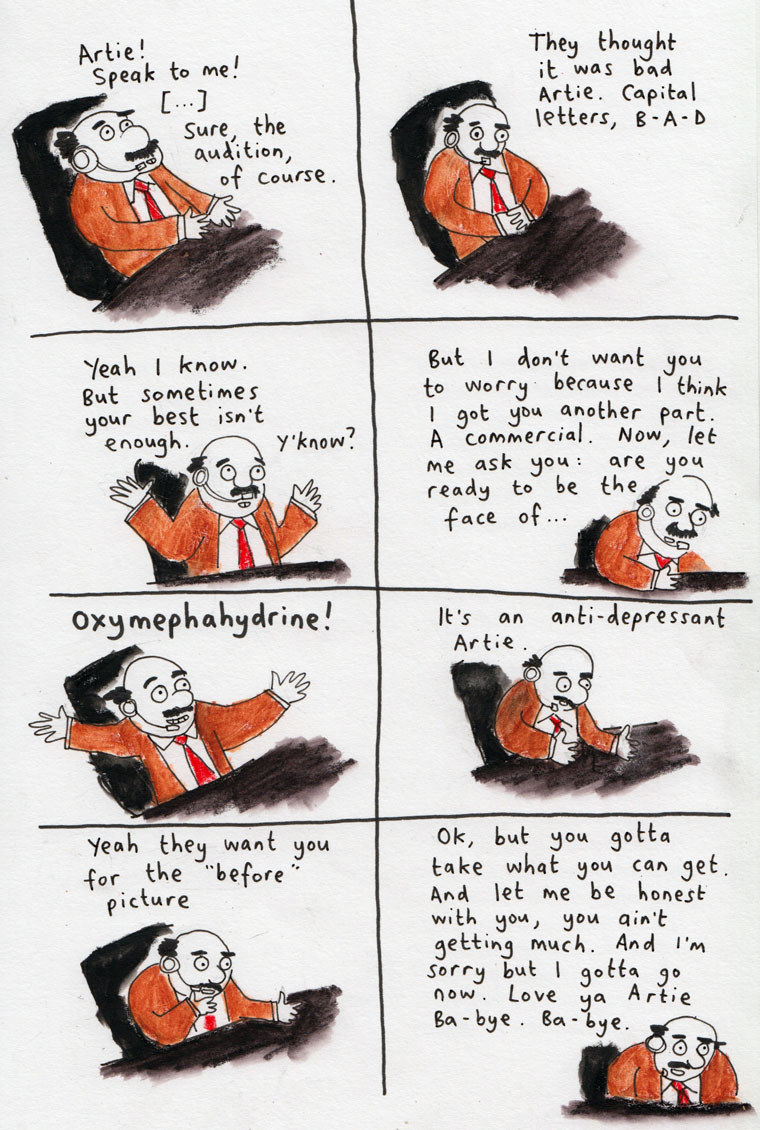 Artie!
Speak to me!
[...]
Sure, the
audition,
of course.
They thought
it was bad
Artie. Capital
letters, B-A-D
Yeah I know.
But sometimes
your best isn't
enough.
Y'know?
But I don't want you
to worry because I think
I got you another part.
A commercial. Now, let
me ask you: are you
ready to be the
face of...
Oxymephahydrine!
It's an anti-depressant
Artie.
Yeah they want you
for the "before"
picture
Ok, but you gotta
take what you can get.
And let me be honest
with you, you ain't
getting much. And I'm
sorry but I gotta go
now. Love ya Artie
Ba-bye. Ba-bye.